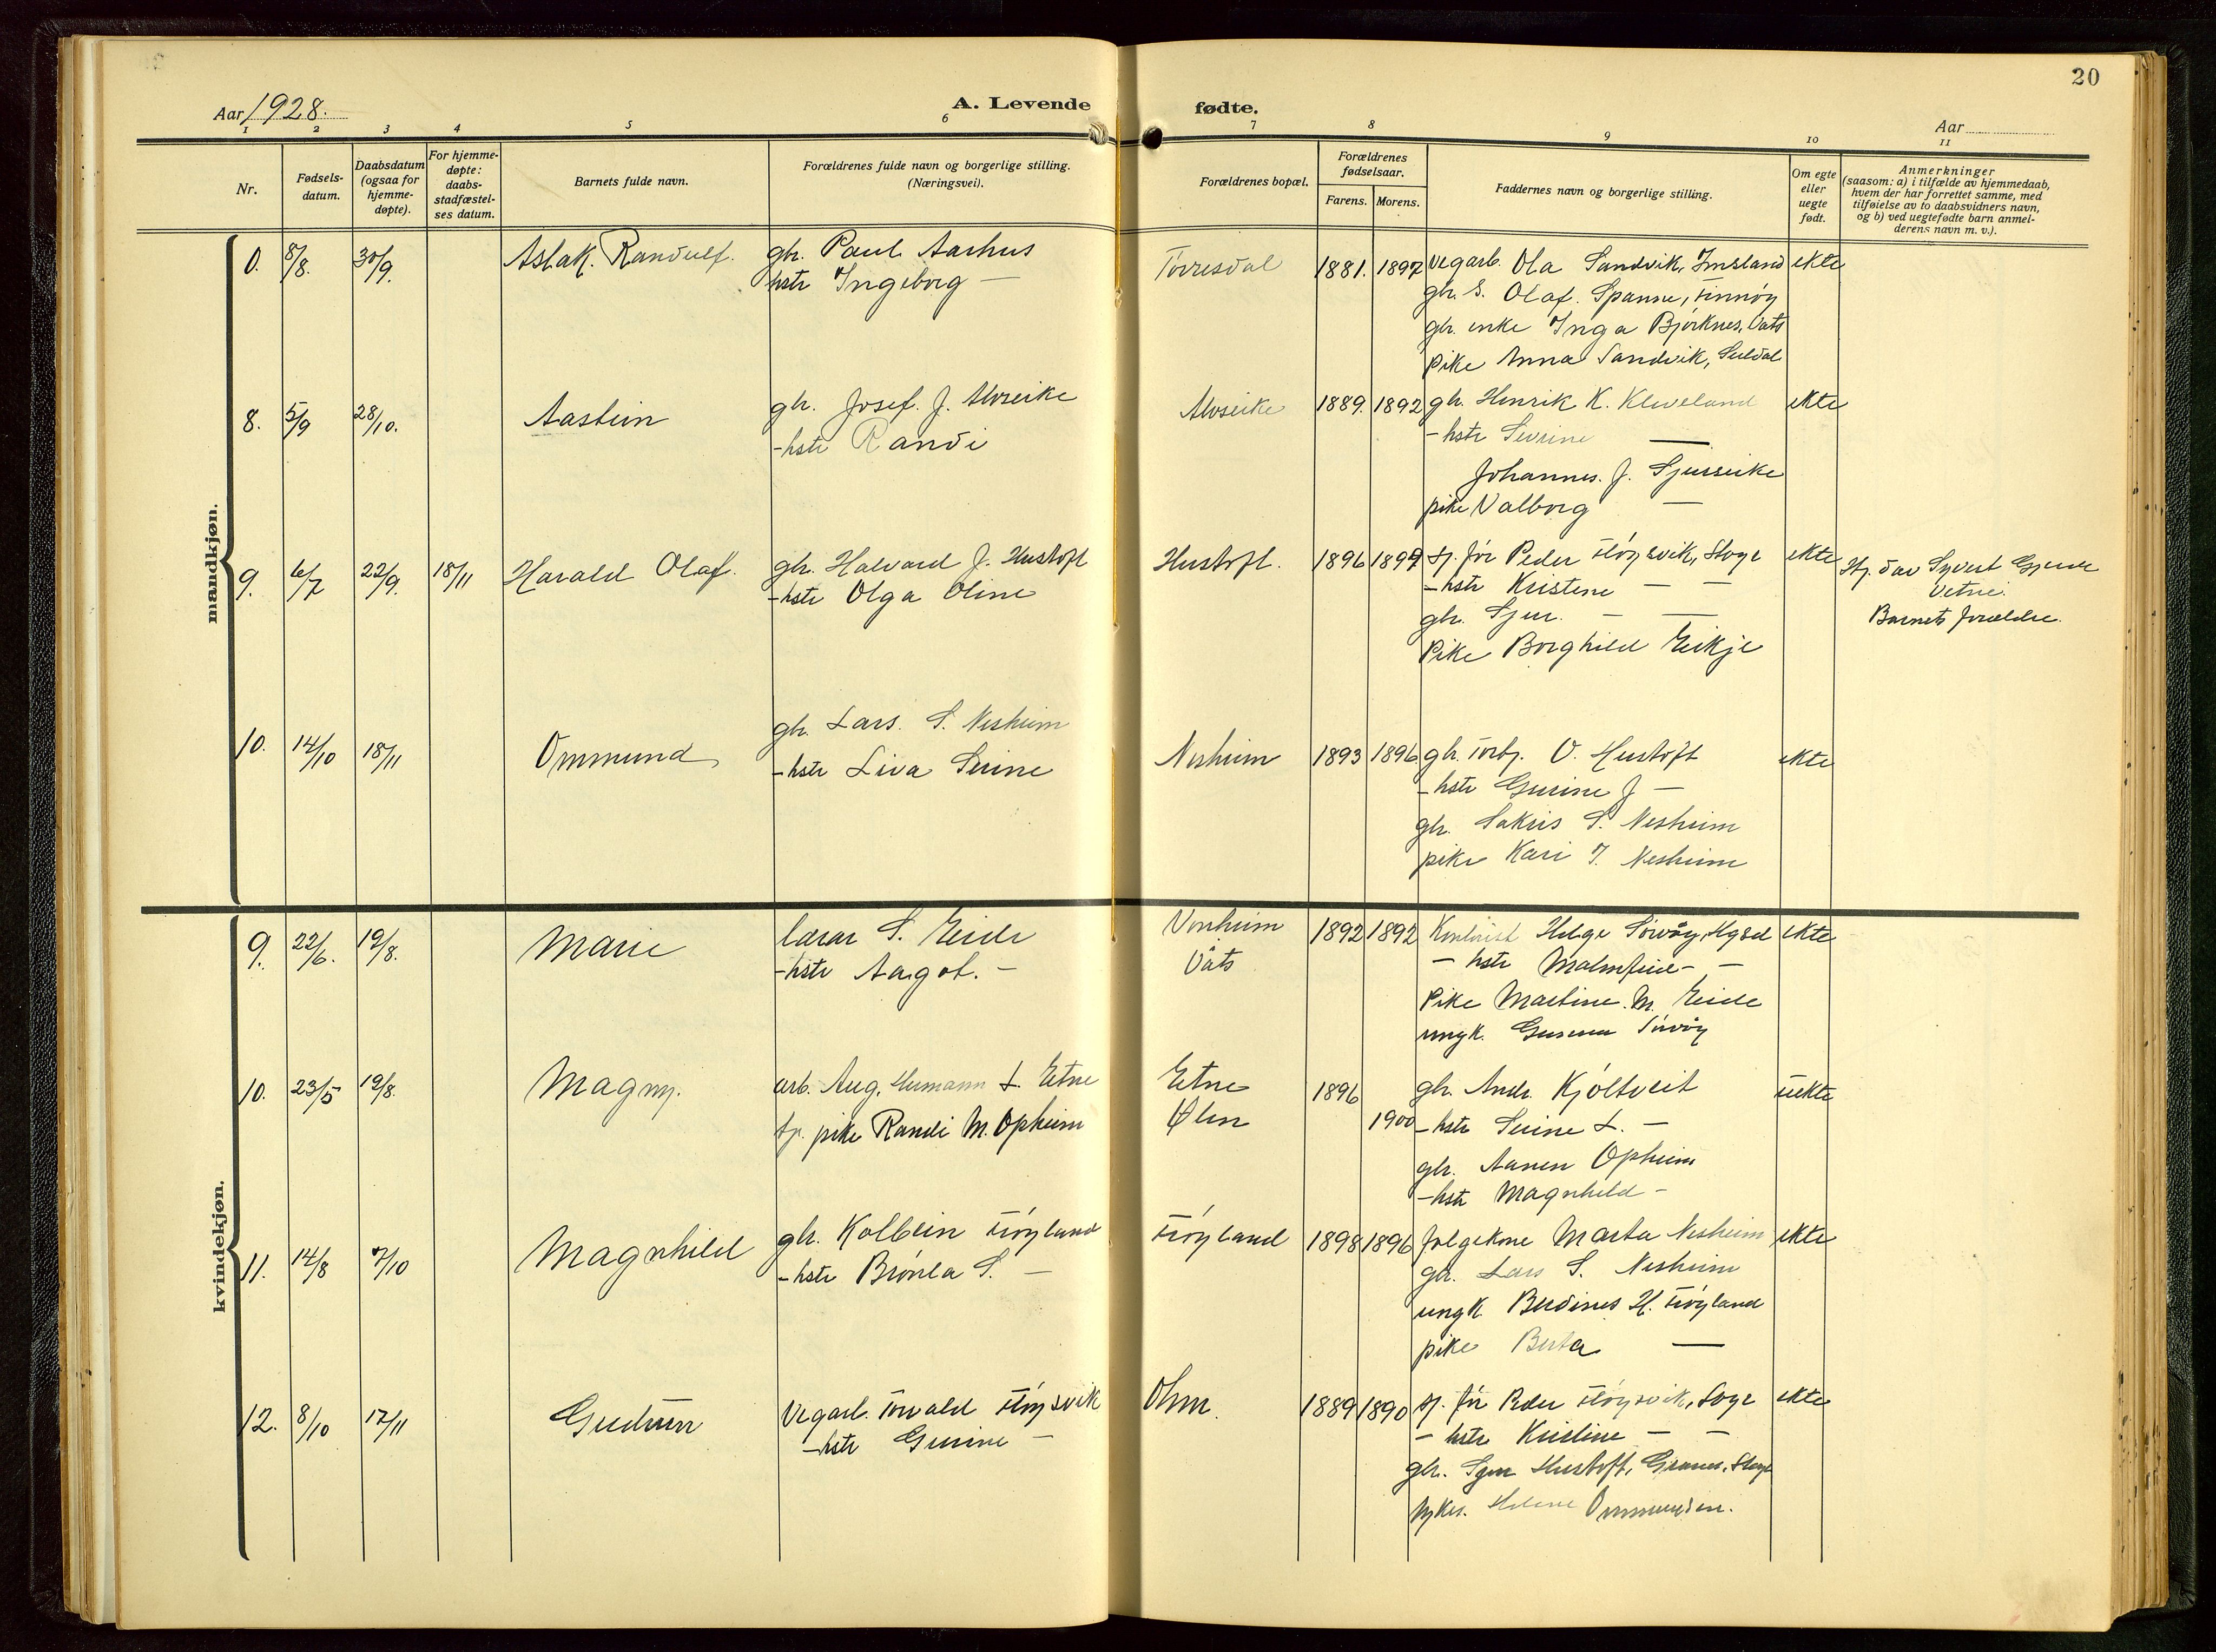 20
Aar 1928.
A. Levende
fødte.
Aar
1 2 3 4 5 6 7 8 9 10 11
Nr.
Fødsels-
datum.
Daabsdatum
(ogsaa for
hjemme-
døpte).
For hjemme-
døpte:
daabs-
stadfæstel-
ses datum.
Barnets fulde navn.
Forældrenes fulde navn og borgerlige stilling.
(Næringsvei).
Forældrenes bopæl.
Forældrenes
fødselsaar.
Farens. Morens.
Faddernes navn og borgerlige stilling.
Om egte
eller
uegte
født.
Anmerkninger
(saasom: a) i tilfælde av hjemmedaab,
hvem der har forrettet samme, med
tilføielse av to daabsvidners navn,
og b) ved uegtefødte barn anmel-
derens navn m. v.).
mandkjøn.
0. 8/8. 30/9. Aslak. Randulf. gbr. Paul Aarhus
hstr Ingeborg —
Torresdal 1881. 1897 vegarb. Ola Sandvik, Imsland ekte
gbr. S. Olaf. Spanne, Finnøy
gbr. enke Inga Bjørknes, Vats
pike Anna Sandvik, Suldal
8. 5/9 28/10. Aastein gbr. Josef. J. Alvseike
-hstr Randi
Alvseike 1889. 1892 gbr. Henrik K. Kleveland ekte
-hstr Sevrine —
Johannes. J. Sjurseike
pike Valborg —
9. 6/7 22/9. 18/11 Harald Olaf. gbr. Halvard J. Hustoft
-hstr Olga Oline
Hustoft. 1896 1899 Peder Fløysvik, ekte
-hstr Kristene — —
gbr. Sjur. — —
Pike Borghild Eikje
Syvert
Vetrie.
Barnets forældre.
10. 14/10 18/11 Ommund gbr. Lars. S. Nesheim
-hstr Liva Serine
Nesheim 1893 1896 gbr. Torbj. O. Hustoft ekte
-hstr Gurine J —
gbr. Sakris S. Nesheim
pike Kari T. Nesheim
kvindekjøn.
9. 22/6. 19/8. Marie lærar S. Eide
-hstr Aagot. —
Vonheim
Vats
1892 1892 Helge Sørvåg, ekte
— hstr Malmfrid — —
Pike Martine. M. Eide
ungk. Gunnar Sørvåg
10. 23/5 19/8. Magny. arb. Aug. Humann L. Etne
pike Randi M. Opheim
Etne
Ølen
1896
1900
gbr. Andr. Kjøltveit uekte
-hstr Serine L. —
gbr. Aanen Opheim
-hstr Magnhild —
11. 14/8 7/10 Magnhild gbr. Kolbein Frøyland
-hstr Brønla S. —
Frøyland 1898 1896 folgekone Marta Nesheim ekte
gbr. Lars S. Nesheim
ungk. Berdines H. Frøyland
pike Berta —
12. 8/10 17/11 Gudrun Vegarb. Torvald Fløysvik
-hstr Gurine —
Ølen. 1889 1890 Peder Fløysvik, ekte
— hstr Kristine — —
gbr. Sjur Hustoft,
Helene Ommundsen.